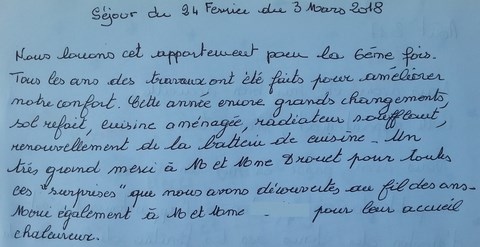 Séjour du 24 Février du 3 Mars 2018
Nous louons cet appartement pour la 6ème fois.
Tous les ans des travaux ont été faits pour améliorer
notre confort. Cette année encore grands changements,
sol refait, cuisine aménagée, radiateur soufflant,
renouvellement de la batterie de cuisine - Un
très grand merci à M et Mme Drouet pour toutes
ces "surprises" que nous avons découvertes au fil des ans -
Merci également à M et Mme pour leur accueil
chaleureux.